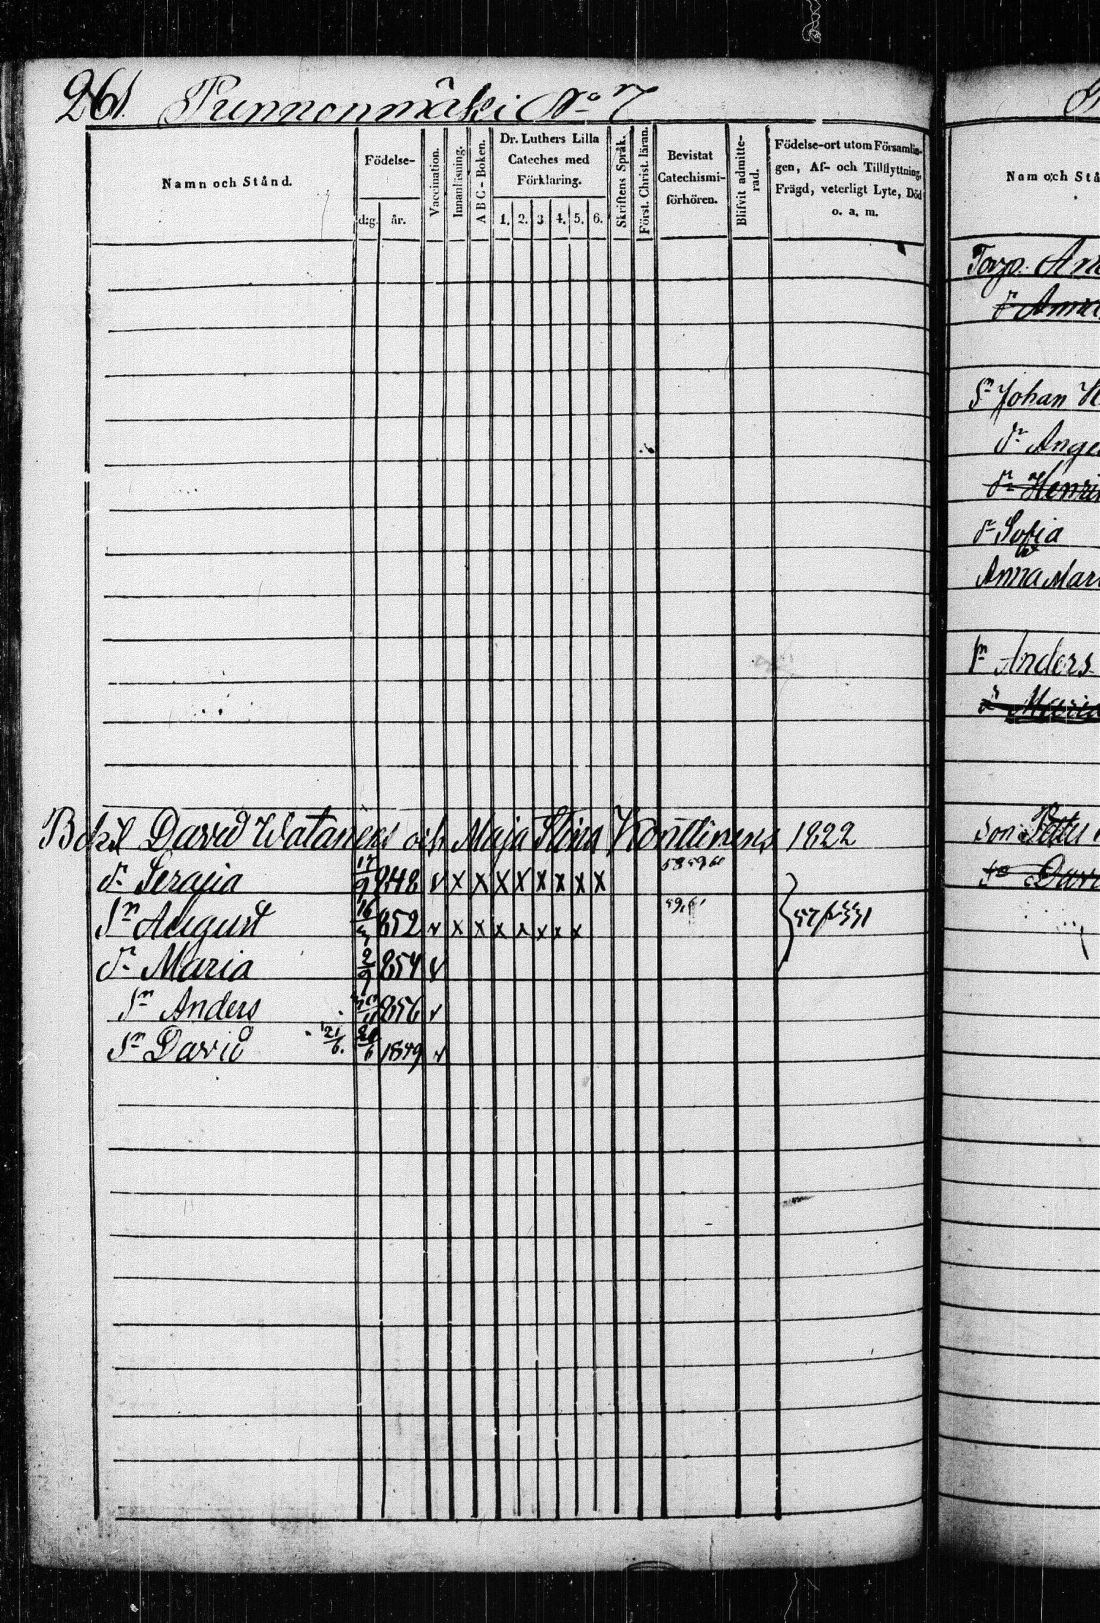 261. Punnonmäki No 7
Namn och Stånd.
Födelse-
d:g. år.
Vaccination.
Innanläsning.
A B C - Boken.
Dr. Luthers Lilla
Cateches med
Förklaring.
1. 2. 3 4. 5. 6.
Skriftens Språk.
Först. Christ. läran.
Bevistat
Catechismi-
förhören.
Blifvit admitte-
rad.
Födelse-ort utom Församlin-
gen, Af- och Tillflyttning,
Frägd, veterligt Lyte, Död
o. a. m.
David Watanens och Maja Stina Konttinens 1822
dr Serafia 17/9 848 v x x x x x x x x 58 59 60
Sn August 16 852 v x x x x x x x 59, 61
dr Maria 2/9 854 v
Sn Anders 856 v
Sn David 21/6. 1849 v
Nam och Stå
Torp. An
Sn Johan H
dr Ange
dr Henri
dr Sofia
Anna Mari
Sn Anders
dr Maria
Son
Sn Davi